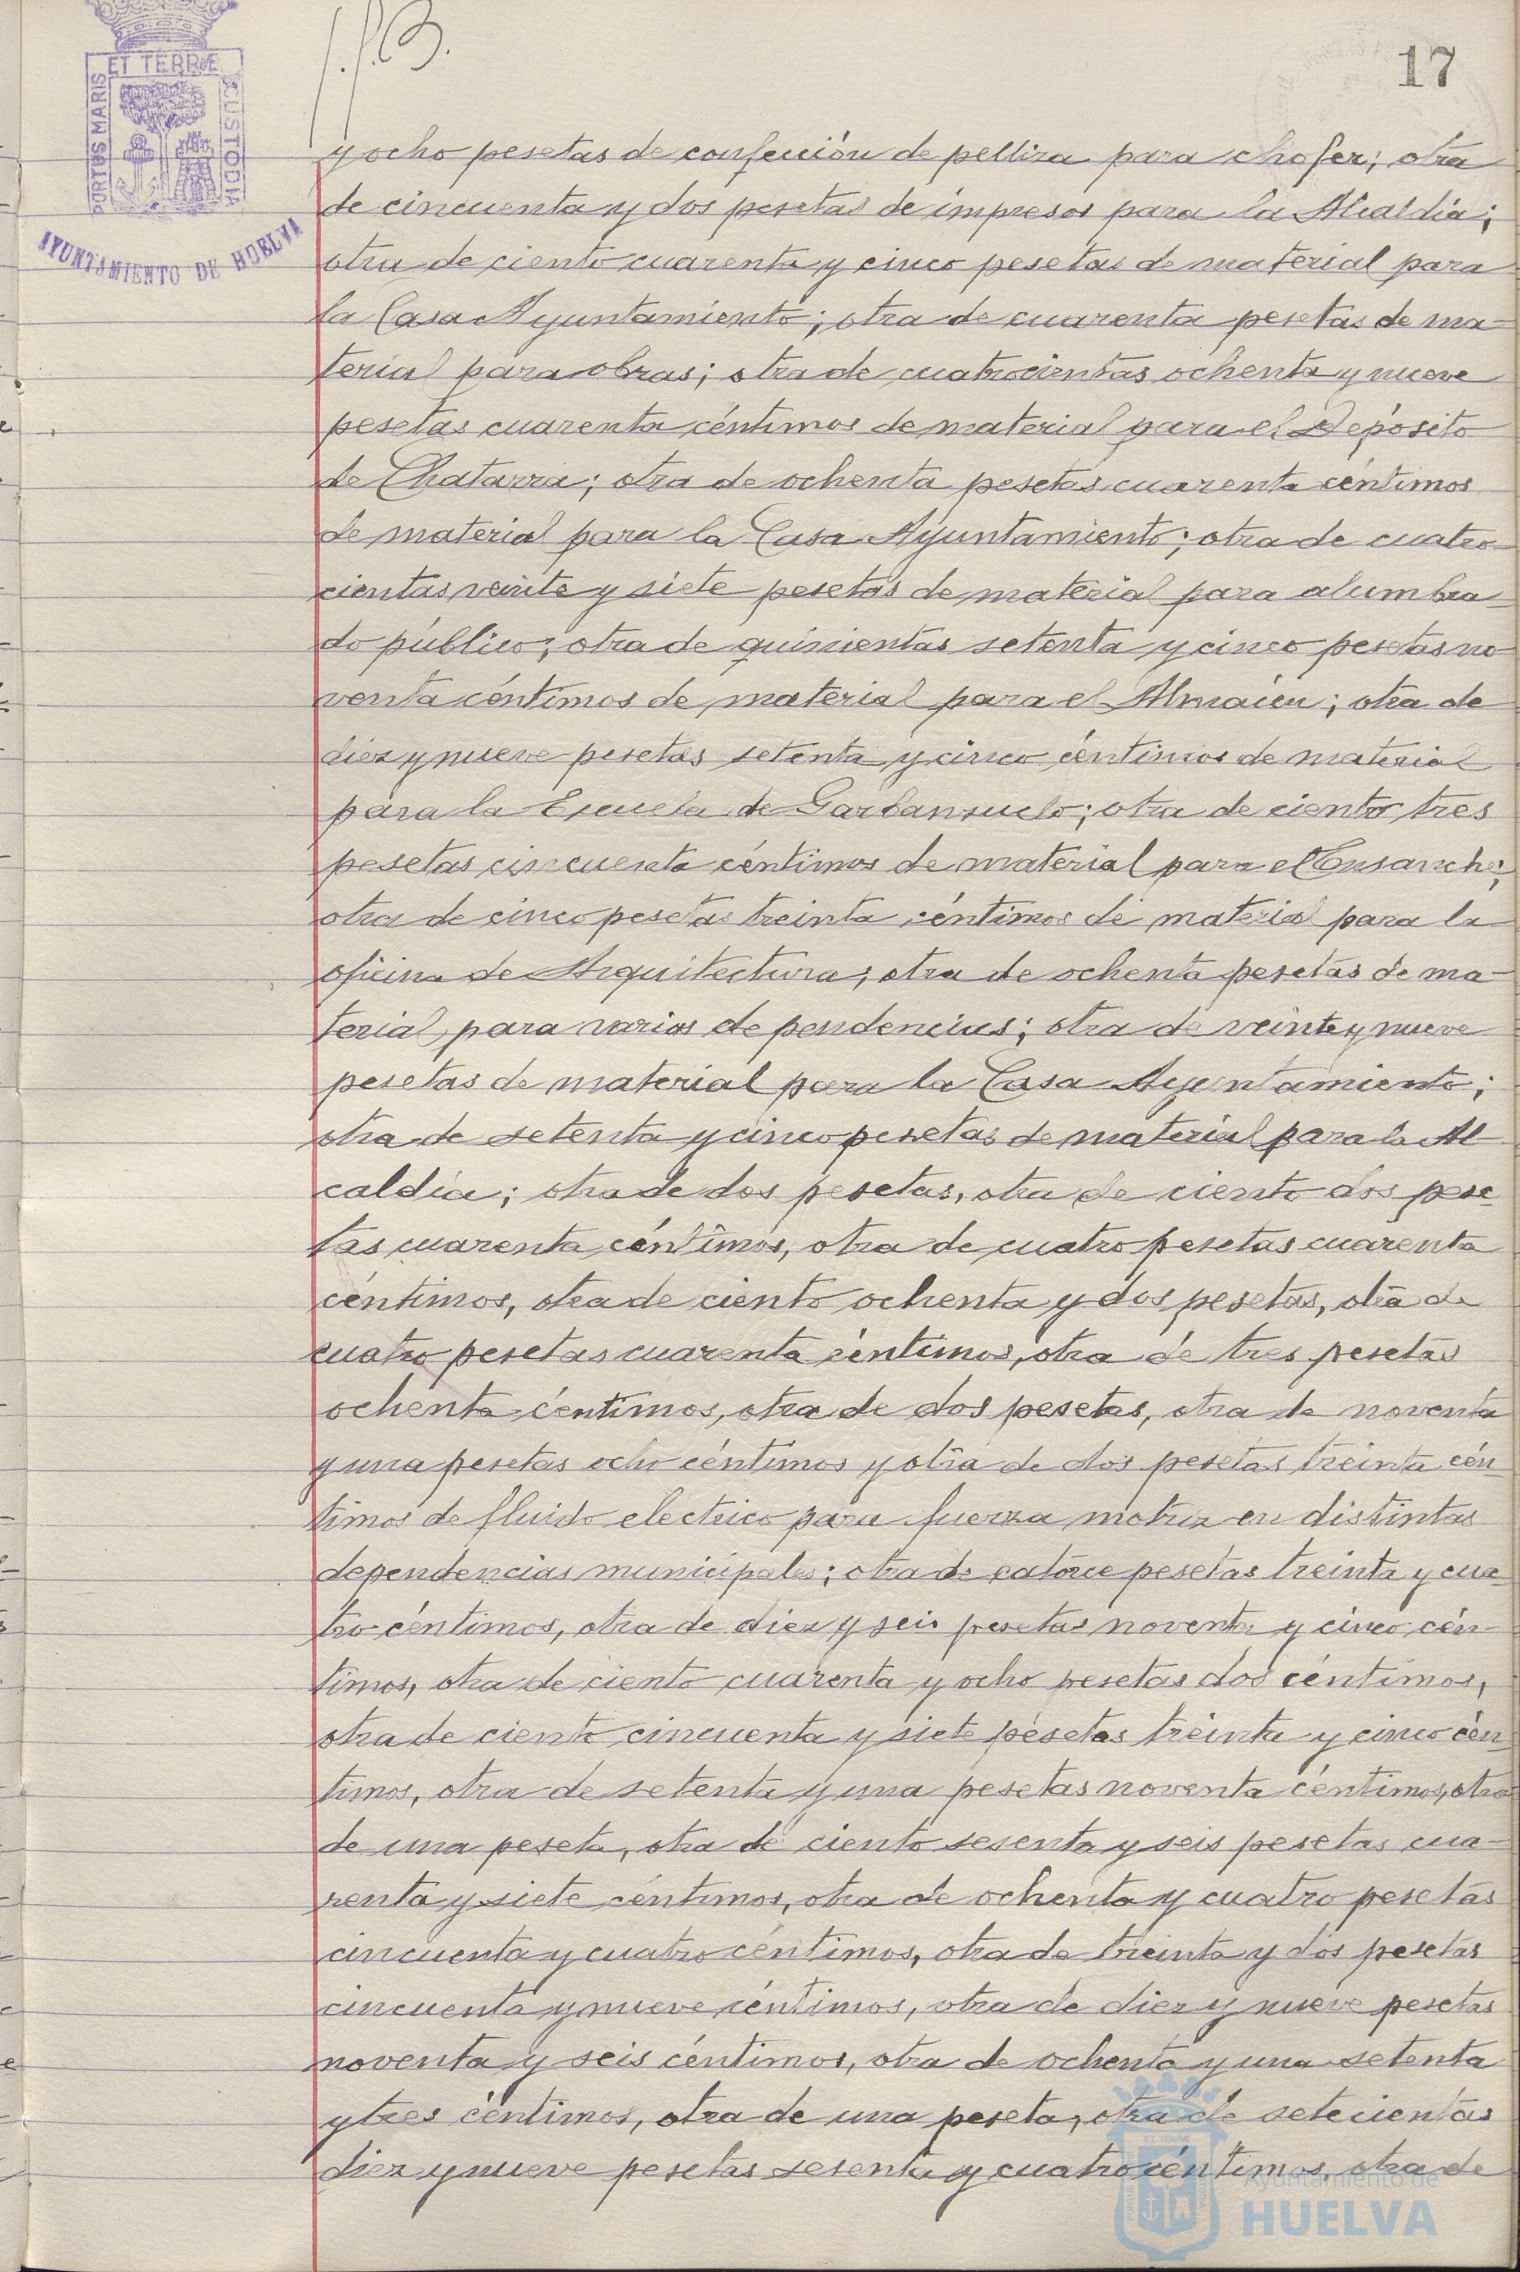 17
PORTUS MARIS ET TERRÆ CUSTODIA
AYUNTAMIENTO DE HUELVA
y ocho pesetas de confección de pelliza para chofer; otra
de cincuenta y dos pesetas de impresos para la Alcaldía;
otra de ciento cuarenta y cinco pesetas de material para
la Casa Ayuntamiento; otra de cuarenta pesetas de ma-
terial para obras; otra de cuatrocientas ochenta y nueve
pesetas cuarenta céntimos de material para el Depósito
de Chatarra; otra de ochenta pesetas cuarenta céntimos
de material para la Casa Ayuntamiento; otra de cuatro-
cientas veinte y siete pesetas de material para alumbra-
do público; otra de quinientas setenta y cinco pesetas no
venta céntimos de material para el Almacén; otra de
diez y nueve pesetas setenta y cinco céntimos de material
para la Escuela de Garbanzuelo; otra de ciento tres
pesetas cincuenta céntimos de material para el Ensanche;
otra de cinco pesetas treinta céntimos de material para la
oficina de Arquitectura; otra de ochenta pesetas de ma-
terial para varias dependencias; otra de veinte y nueve
pesetas de material para la Casa Ayuntamiento;
otra de setenta y cinco pesetas de material para la Al-
caldía; otra de dos pesetas, otra de ciento dos pese-
tas cuarenta céntimos, otra de cuatro pesetas cuarenta
céntimos, otra de ciento ochenta y dos pesetas, otra de
cuatro pesetas cuarenta céntimos, otra de tres pesetas
ochenta céntimos, otra de dos pesetas, otra de noventa
y una pesetas ocho céntimos y otra de dos pesetas treinta cén-
timos de fluido electrico para fuerza motriz en distintas
dependencias municipales; otra de catorce pesetas treinta y cua-
tro céntimos, otra de diez y seis pesetas noventa y cinco cén-
timos, otra de ciento cuarenta y ocho pesetas dos céntimos,
otra de ciento cincuenta y siete pesetas treinta y cinco cén-
timos, otra de setenta y una pesetas noventa céntimos, otra
de una peseta, otra de ciento sesenta y seis pesetas cua-
renta y siete céntimos, otra de ochenta y cuatro pesetas
cincuenta y cuatro céntimos, otra de treinta y dos pesetas
cincuenta y nueve céntimos, otra de diez y nueve pesetas
noventa y seis céntimos, otra de ochenta y una setenta
y tres céntimos, otra de una peseta, otra de setecientas
diez y nueve pesetas sesenta y cuatro céntimos, otra de
Ayuntamiento de
HUELVA